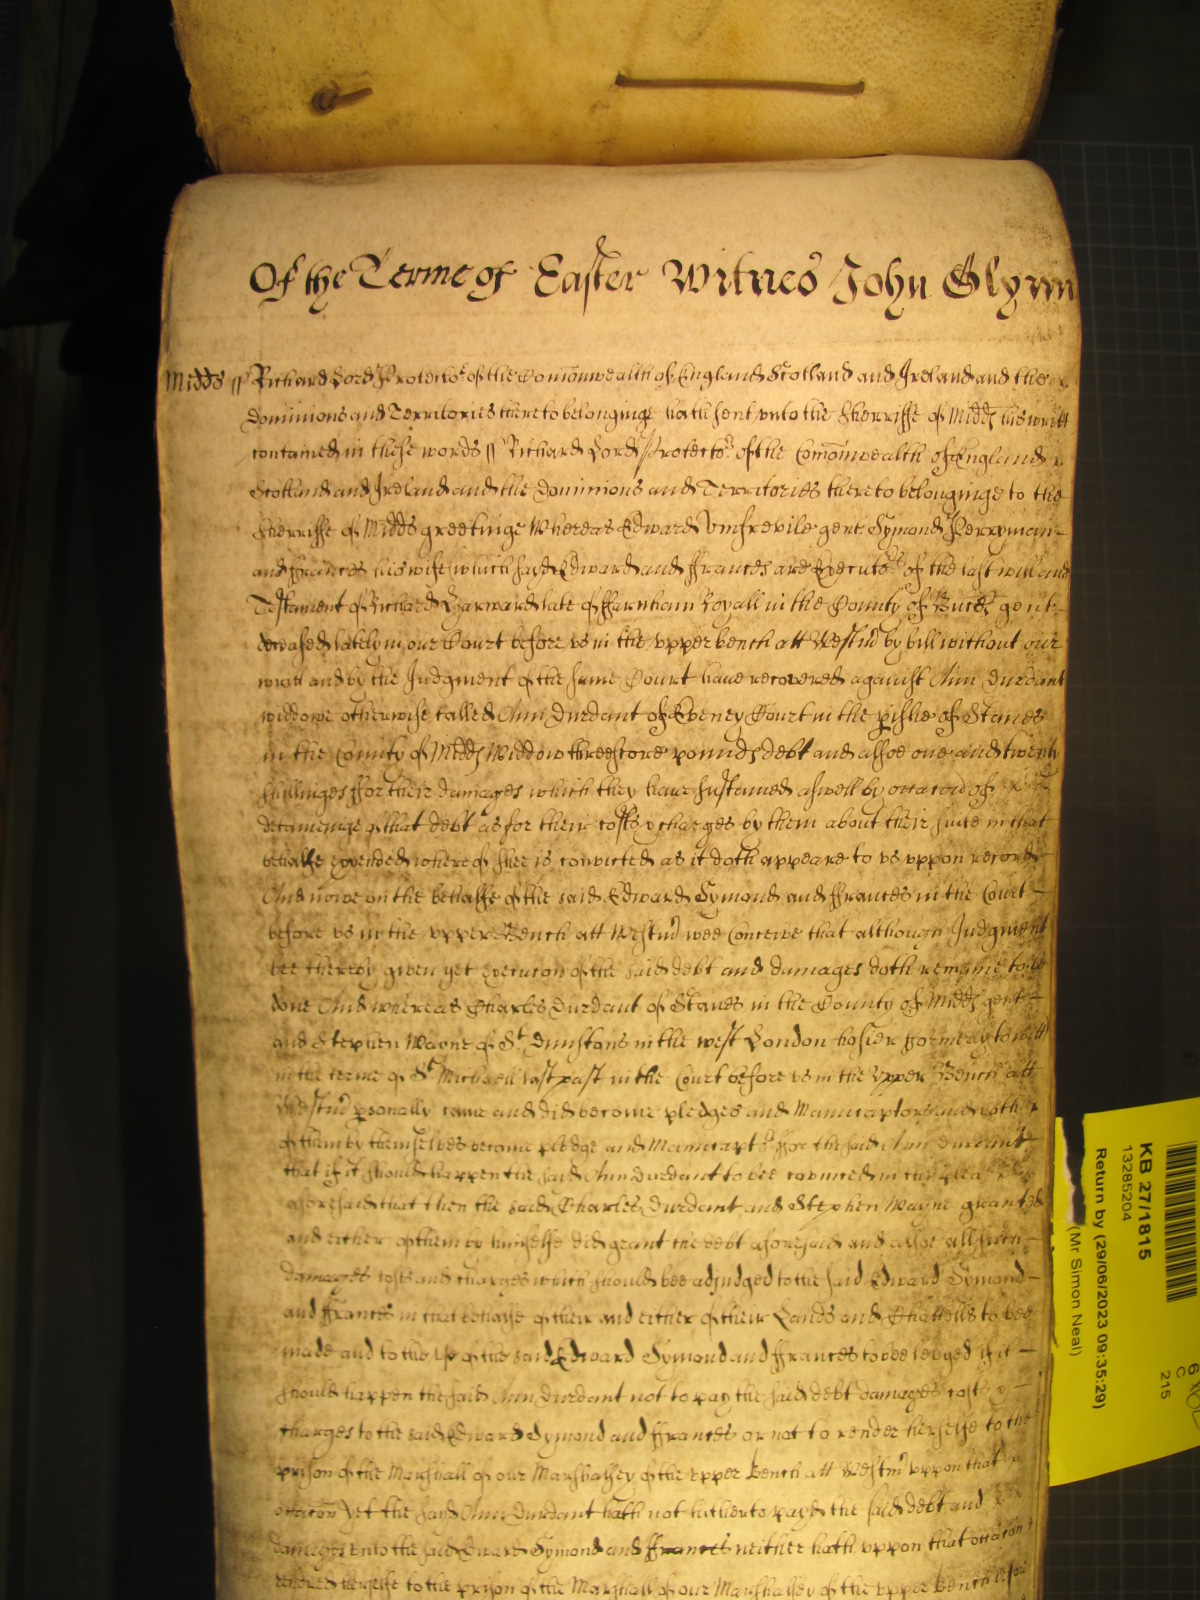 Of the Terme of Easter Witnes John Glynn
Midds // Richard Lord Protector of the Comonwealth of England Scotland and Ireland and the
Dominions and Territories thereto belonginge hath sent unto the Sherriffe of Midds his writt
contained in these words // Richard Lord Protector of the Comonwealth of England
Scotland and Ireland and the Dominions and Territories thereto belonginge to the
Sherriffe of Midds greetinge Whereas Edward Vmfrevile gent Symond Perryman
and ffrances his wife which said Edward and ffrances are Executors of the last will and
Testament of Richard Harward late of ffarnham Royall in the County of Bucks gent
deceased lately in our Court before vs in the vpper bench att Westmr by bill without our
writt and by the Judgment of the same Court have recovered against Ann Durdant
widdowe otherwise called Ann Durdant of Eveney Court in the pishe of Stanes
in the County of Midds Widdow threescore pounds debt and alsoe one and twenty
shillinges ffor their damages which they have sustained aswell by occacion of
deteyninge of that debt as for their costs & charges by them about their suite in that
behalfe expended whereof shee is convicted as it doth appeare to vs vppon record
And nowe on the behalfe of the said Edward Symond and ffrances in the Court
before vs in the vpper Bench att Westmr wee conceive that although Judgment
bee thereby given yet execucon of the said debt and damages doth remaine to be
done And whereas Charles Durdant of Stanes in the County of Midds gent
and Stephen Wayne of St Dunstans in the west London hosier formerly to witt
in the terme of St Michaell last past in the Court before vs in the Vpper Bench att
Westmr psonally came and did become pledges and Manucaptors and either
of them by themselves become pledge and Manucaptor ffor the said Ann Durdant
that if it should happen the said Ann Durdant to bee convicted in the plea
aforesaid that then the said Charles Durdant and Stephen Wayne granted
and either of them by himselfe did grant the debt aforesaid and alsoe all such
damages costs and charges which should bee adjudged to the said Edward Symond
and ffrances in that behalfe of their and either of their Lands and Chattells to bee
made and to the vse of the said Edward Symond and ffrances to bee levyed if it
should happen the said Ann Durdant not to pay the said debt damages costs &
charges to the said Edward Symond and ffrances or not to render herselfe to the
prison of the Marshall of our Marshalsey of the vpper Bench att Westmr vppon that
occacon Yet the said Ann Durdant hath not hitherto payd the said debt and
damages vnto the said Edward Symond and ffrances neither hath vppon that occacon
rendred herselfe to the prison of the Marshall of our Marshalsey of the vpper Bench before
KB 27/1815
13285204
Return by (29/06/2023 09:35:29)
(Mr Simon Neal)
6
C
215